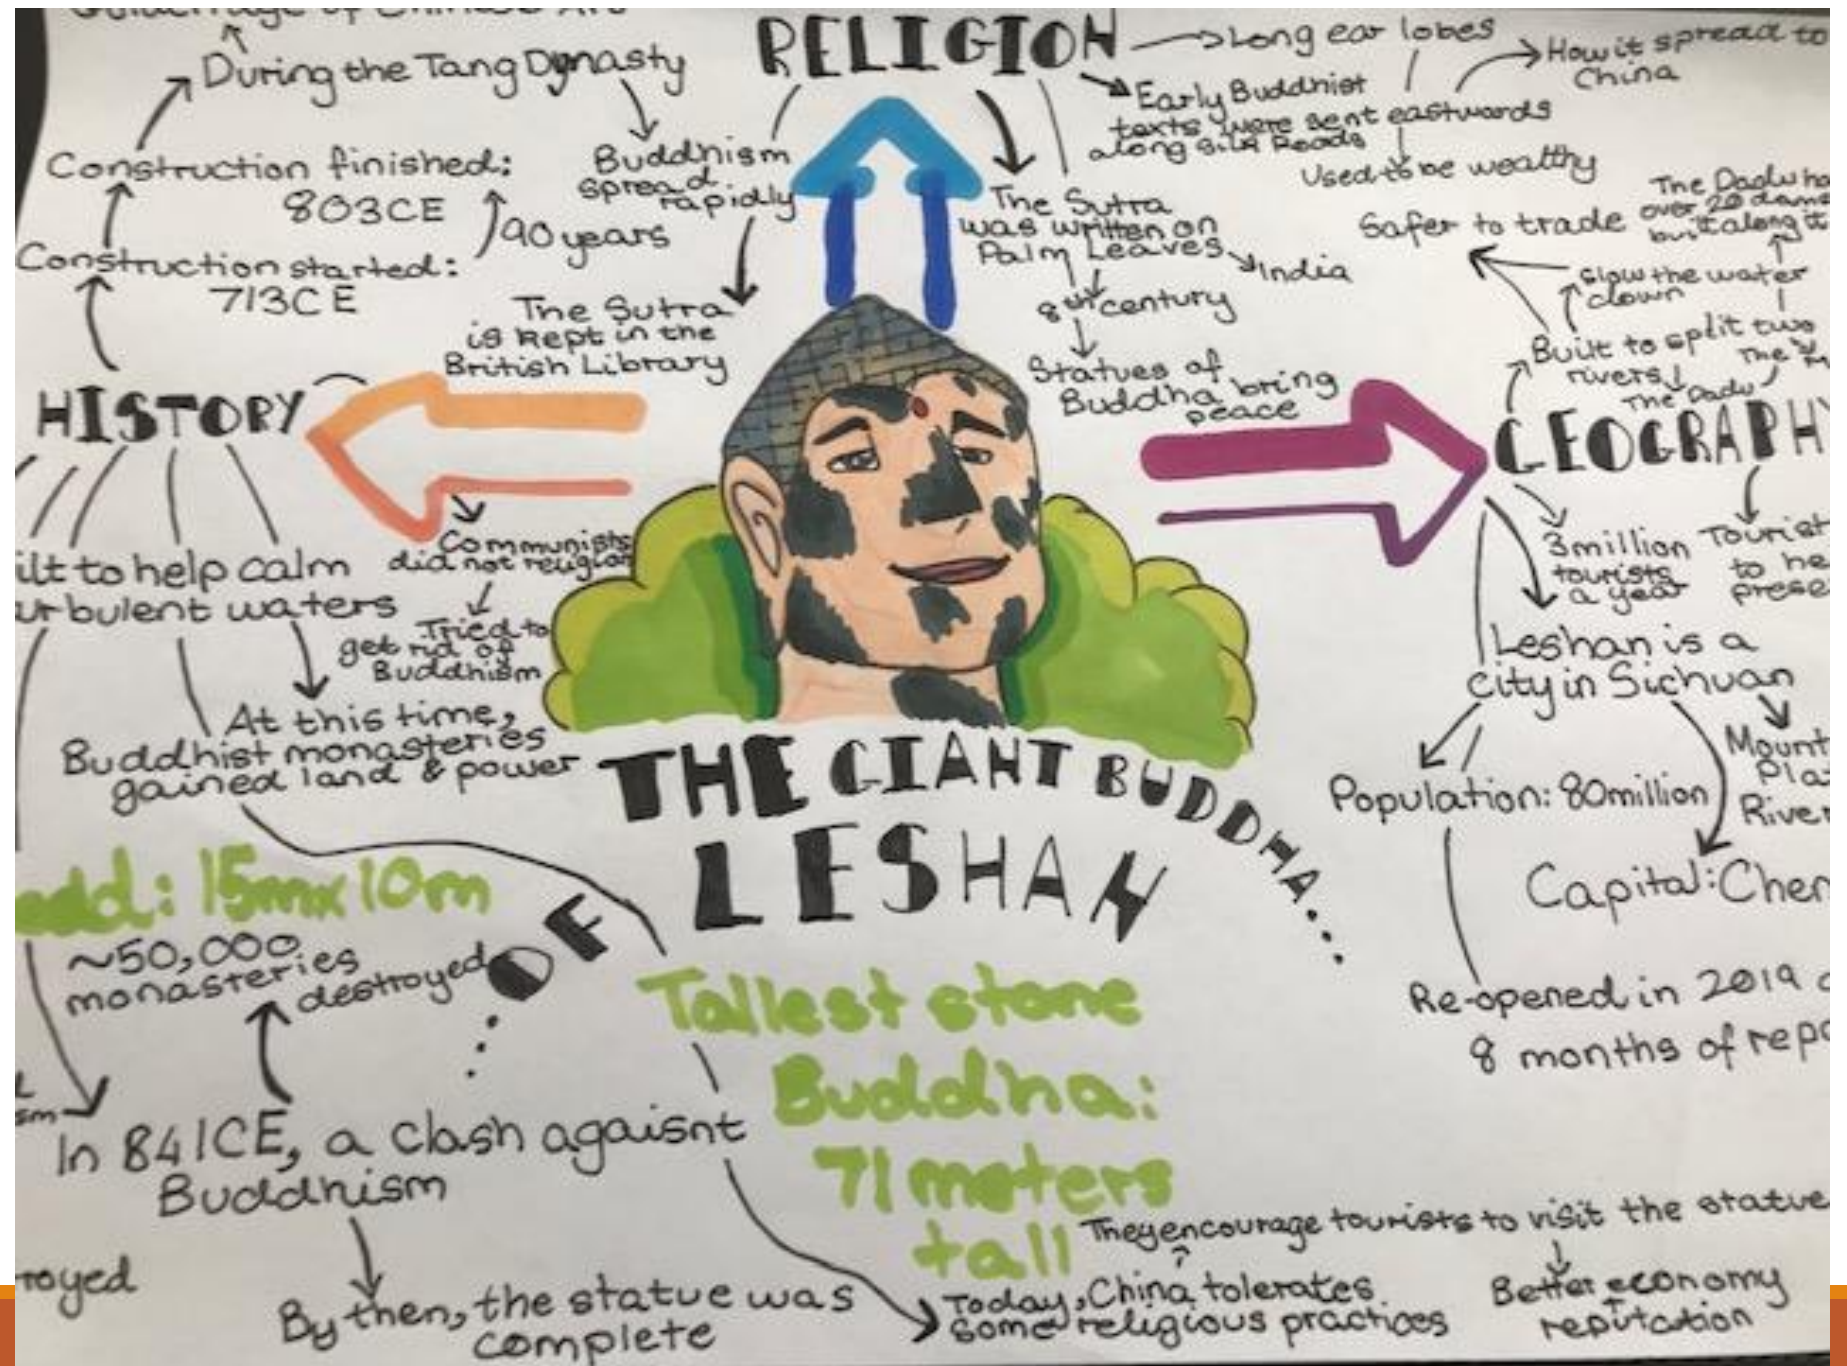 During the Tang Dynasty
Construction finished:
803CE
90 years
Construction started:
713CE
Buddhism
spread
rapidly
The Sutra
is kept in the
British Library
RELIGION
Long ear lobes
How it spread to
China
Early Buddhist
texts were sent eastwards
along Silk Roads
Used to be wealthy
The Sutra
was written on
Palm Leaves
India
8th century
Statues of
Buddha bring
peace
The Dadu ha
over 20 dams
built along it
Safer to trade
Slow the water
down
Built to split two
rivers
The Dadu
The
HISTORY
GEOGRAPHY
Communists
did not religion
Tried to
get rid of
Buddhism
ilt to help calm
urbulent waters
At this time,
Buddhist monasteries
gained land & power
3 million
tourists
a year
Tourist
to he
prese
Leshan is a
city in Sichuan
Population: 80million
Mount
Pla
River
Capital: Chen
Re-opened in 2019
8 months of repa
THE GIANT BUDDHA...
...OF
LESHAN
15m x 10m
~50,000
monasteries
destroyed
Tallest stone
Buddha:
71 meters
tall
sm
In 841CE, a clash agaisnt
Buddhism
royed
By then, the statue was
complete
They encourage tourists to visit the statue
Today, China tolerates
some religious practices
Better economy
reputation